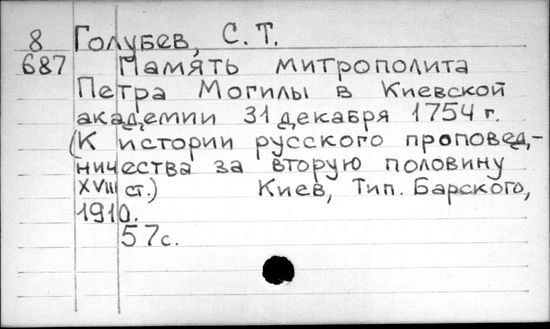 8 Голубев, С. Т.
687 Память митрополита
Петра Могилы в Киевской
академии 31 декабря 1754 г.
(К истории русского проповед,-
ничества за вторую половину
XVIII ст.) Киев, Тип. Барского,
1910.
57с.